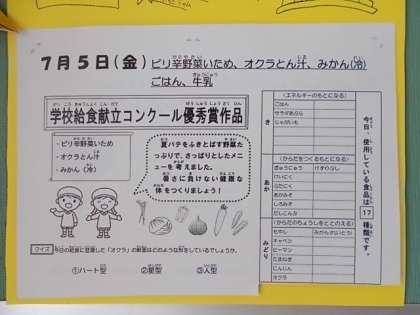 7月5日(金) ピリ辛野菜いため、オクラとん汁、みかん(冷)
ごはん、牛乳
学校給食献立コンクール優秀賞作品
・ピリ辛野菜いため
・オクラとん汁
・みかん(冷)
夏バテをふきとばす野菜た
っぷりで、さっぱりとしたメニ
ューを考えました。
暑さに負けない健康な
体をつくりましょう!
クイズ 今日の給食に登場した「オクラ」の断面はどのような形をしているでしょうか。
①ハート型 ②星型 ③人型
き
(エネルギーのもとになる)
ごはん
サラダあぶら
じゃがいも
あか
(からだをつくるもとになる)
ぎゅうにゅう けずりぶし
とりにく
ぶたにく
あかみそ
しろみそ
だしこんぶ
みどり
(からだのちょうしをととのえる)
もやし みかん(れいとう)
キャベツ
ピーマン
たまねぎ
にんじん
オクラ
今日、使用している食品は17種類です。